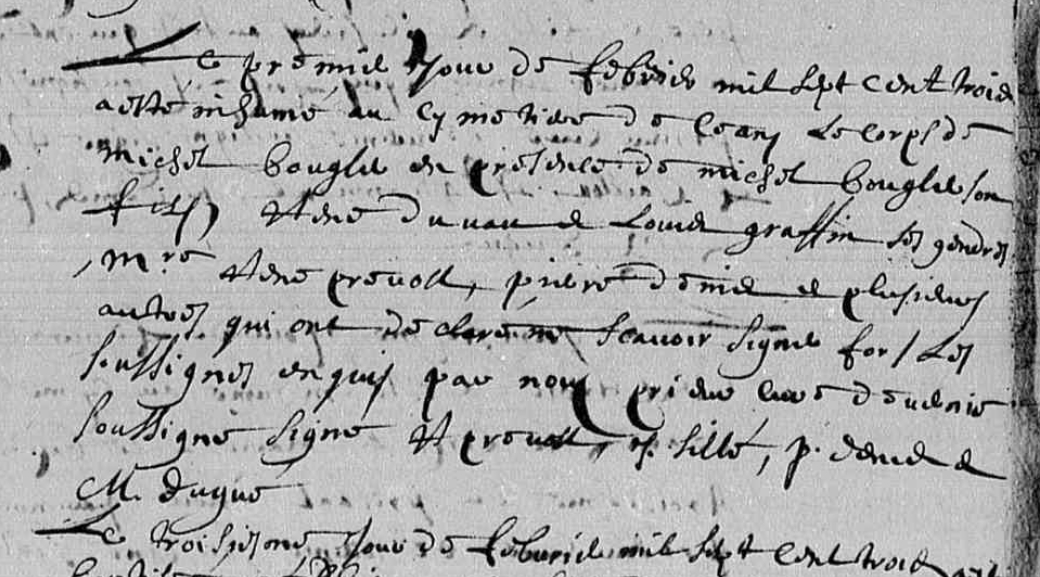 Le premier jour de febvrier mil sept cent trois
a esté inhumé au cymetiere de ceans le corps de
michel bouglé en presence de michel bouglé son
fils, René duvau et Louis graffin ses gendres
, mre René prevost, pierre denie et plusieurs
autres qui ont declaré ne scavoir signer fors les
soussignés enquis par nous prieur curé
soussigné signé R prevost, sillé, p. denie et
M. dugué
Le troisiesme jour de febvrier mil sept cent trois